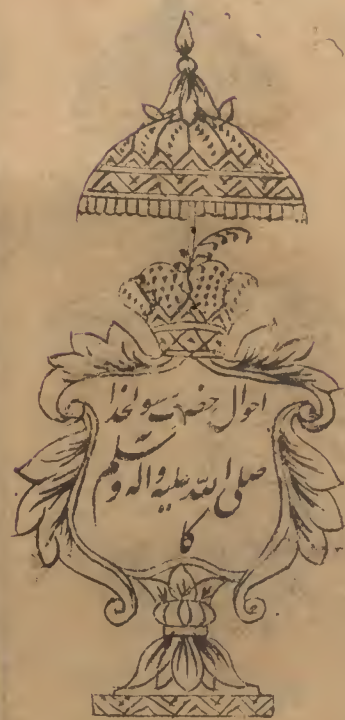 احوال حضرت رسولخدا
صلی اللہ علیہ والہ وسلم
کا